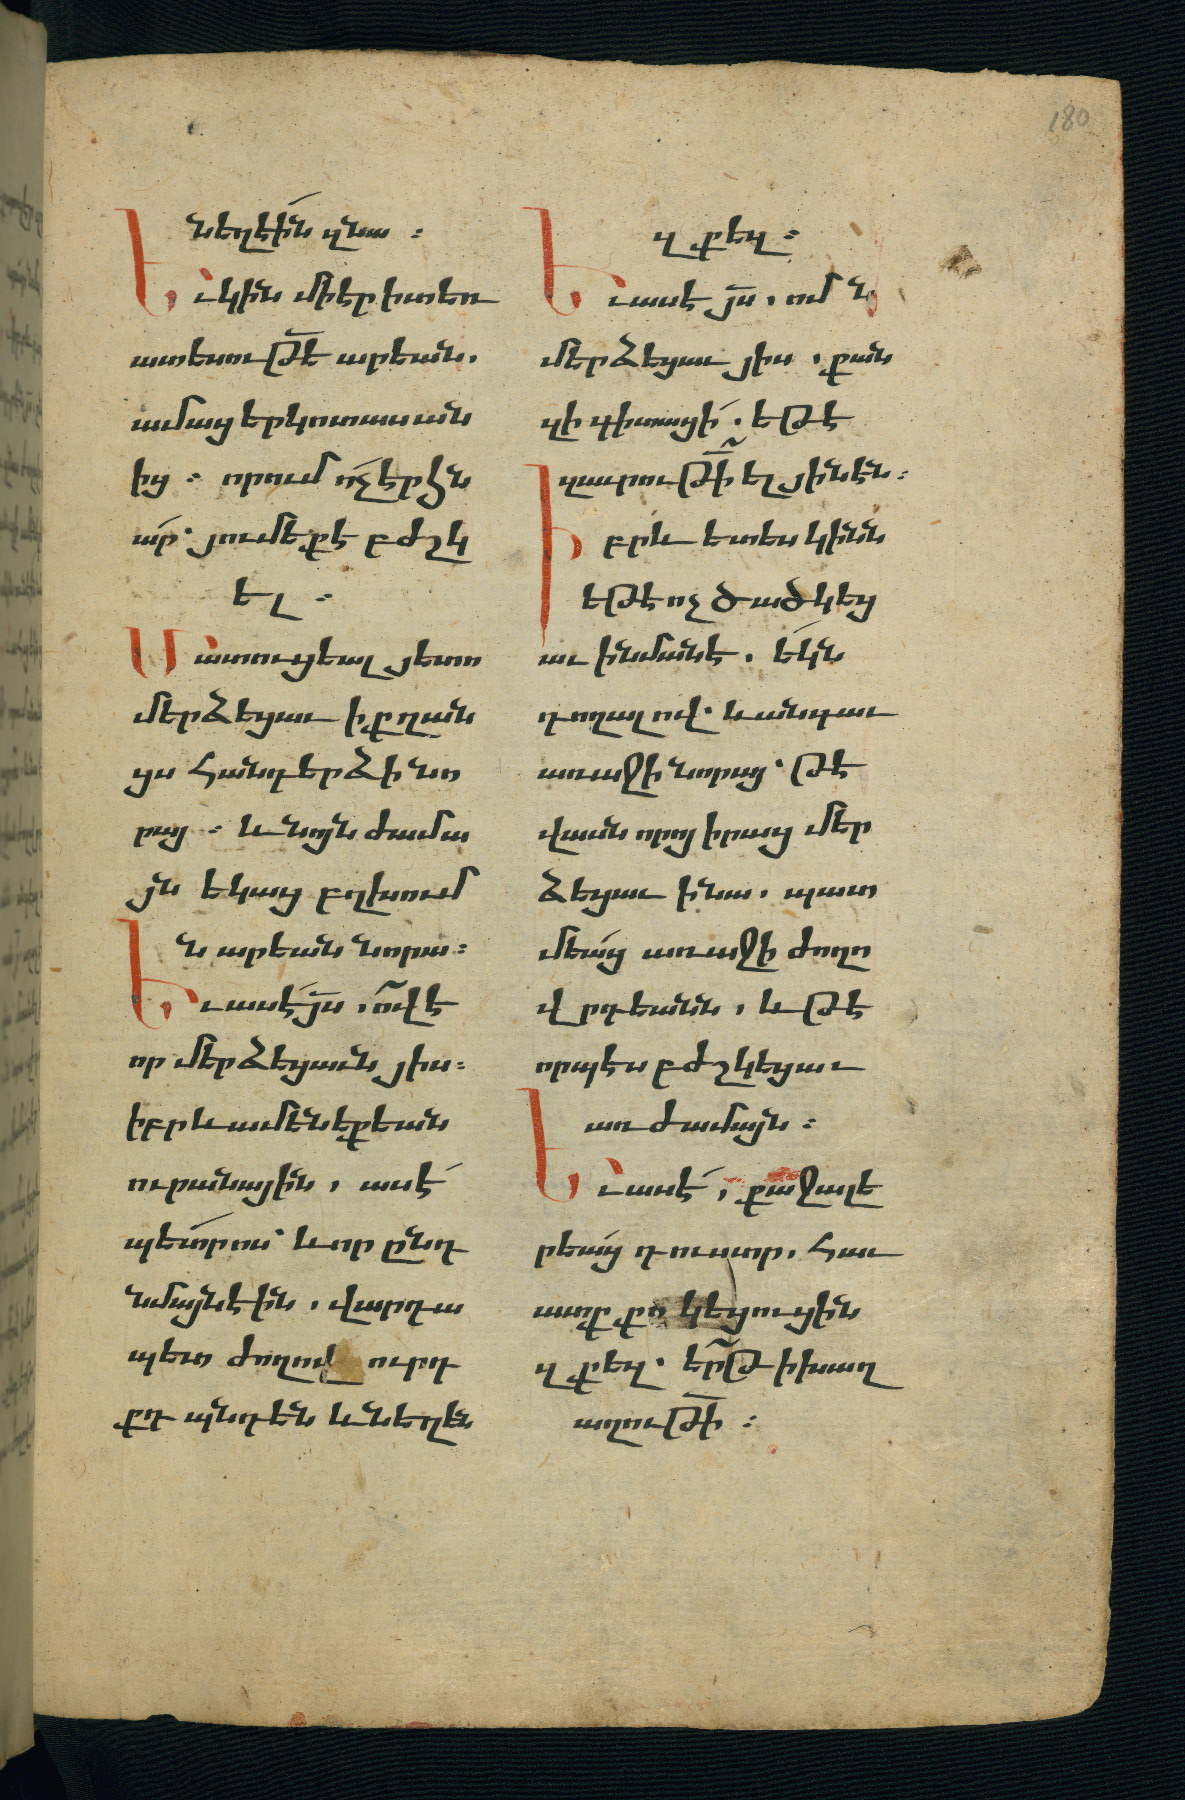 180
նեղէին զնա ։
Եւ կին մի էր ի տեռ
ատեսութէ արեան.
ամաց երկոտասան
ից ։ որում ոչ էր հն
ար՝ յումեքէ բժշկ
ել ։
Մատուցեալ յետո
մերձեցաւ ի քղան
ցս հանդերձի նո
րայ ։ և նոյն ժամա
յն եկաց բղխում
ն արեան նորա ։
Եւ ասէ յս, ո՞վ է
որ մերձեցաւն յիս ։
իբրև ամենեքեան
ուրանային, ասէ
պետրոս՝ և որ ընդ
նմայն էին, վարդա
պետ ժողովուրդ
քդ պնդեն և նեղեն
զքեզ ։
Եւ ասէ յս, ոմն
մերձեցաւ յիս, քան
զի գիտացի. եթէ
զաւրութի ել յինէն ։
Իբրև ետես կինն
եթէ ոչ ծածկեց
աւ ինմանէ. եկն
դողալով՝ և անկաւ
առաջի նորայ՝ թէ
վասն որոյ իրաց մեր
ձեցաւ ինա. պատ
մեաց առաջի ժողո
վրդեանն, և թէ
որպէս բժշկեցաւ
առժամայն ։
Եւ ասէ, քաջալե
րեաց դուստր, հաւ
ատք քո կեցուցին
զքեզ. երթ ի խաղ
աղութի ։